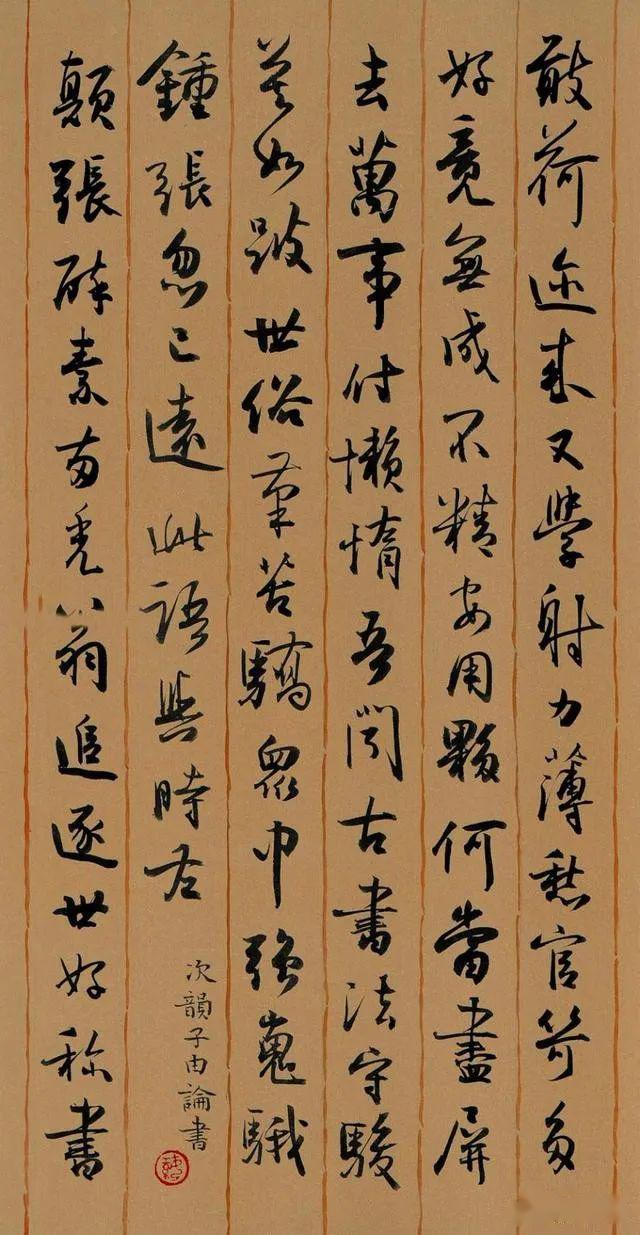 敢荷迩来又學射力薄愁官笴多
好竟無成不精安用夥何當盡屏
去萬事付懶惰吾聞古書法守駿
莫如跛世俗筆苦驕眾中強嵬騀
鍾張忽已遠此語與時左
次韻子由論書
顛張醉素两禿翁追逐世好称書